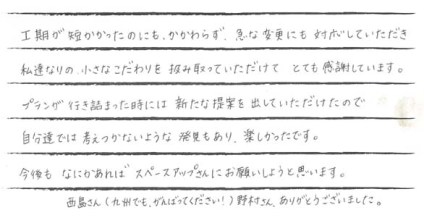 工期が短かかったのにも、かかわらず、急な変更にも対応していただき
私達なりの小さなこだわりを汲み取っていただけて とても感謝しています。
プランが行き詰まった時には 新たな提案を出していただけたので
自分達では考えつかないような発見もあり、楽しかったです。
今後も なにかあれば スペースアップさんにお願いしようと思います。
西島さん(九州でも、がんばってください!)野村さん、ありがとうございました。